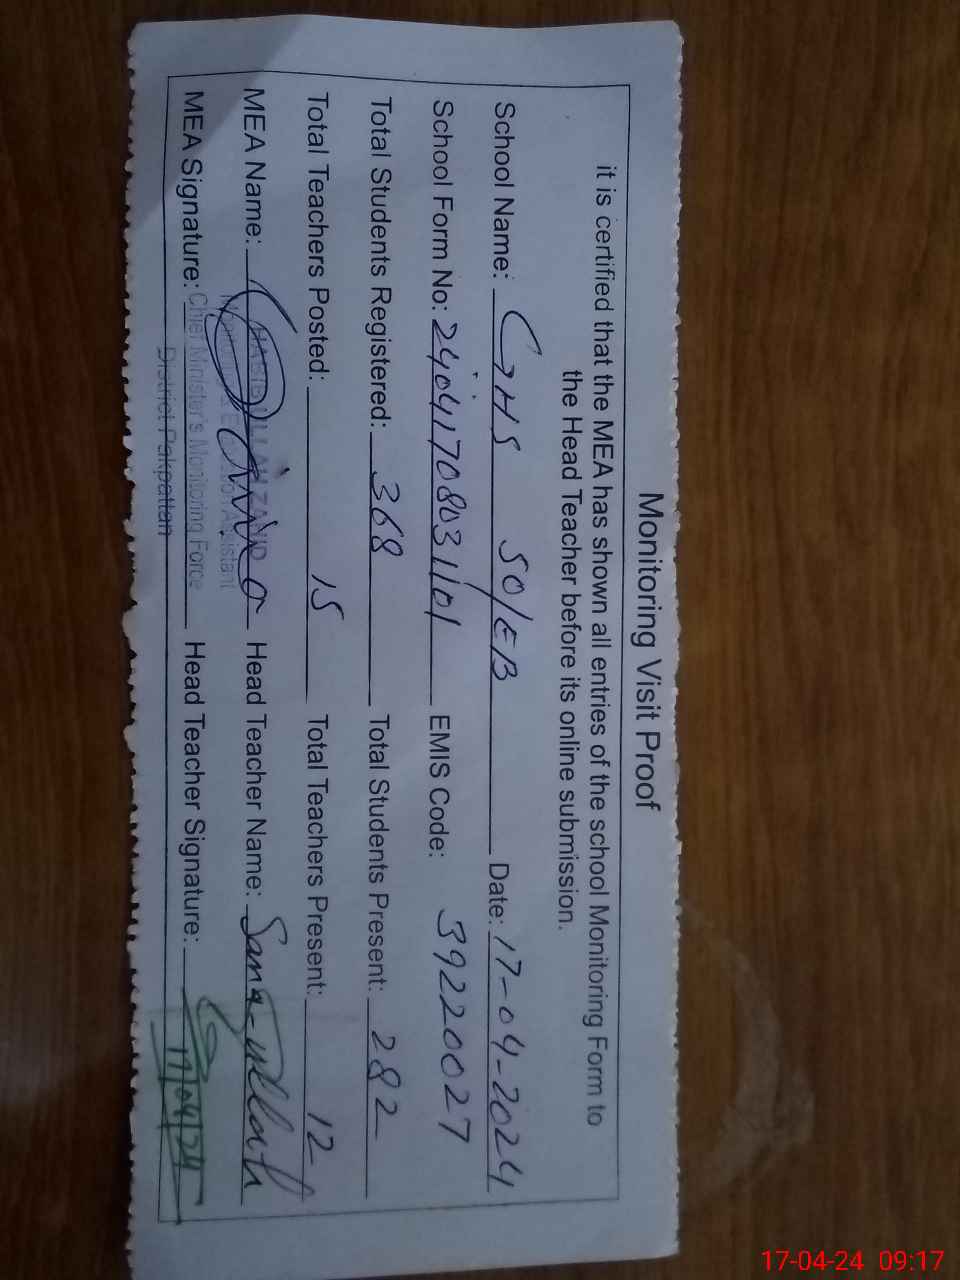 Monitoring Visit Proof
it is certified that the MEA has shown all entries of the school Monitoring Form to
the Head Teacher before its online submission.
School Name: GHS 50/EB Date: 17-04-2024
School Form No: 24041708031101 EMIS Code: 39220027
Total Students Registered: 368 Total Students Present: 282
Total Teachers Posted: 15 Total Teachers Present: 12
MEA Name: Head Teacher Name: Sana-ullah
Assistant
MEA Signature: Chief Minister's Monitoring Force Head Teacher Signature:
District Pakpattan 17/04/24
17-04-24 09:17